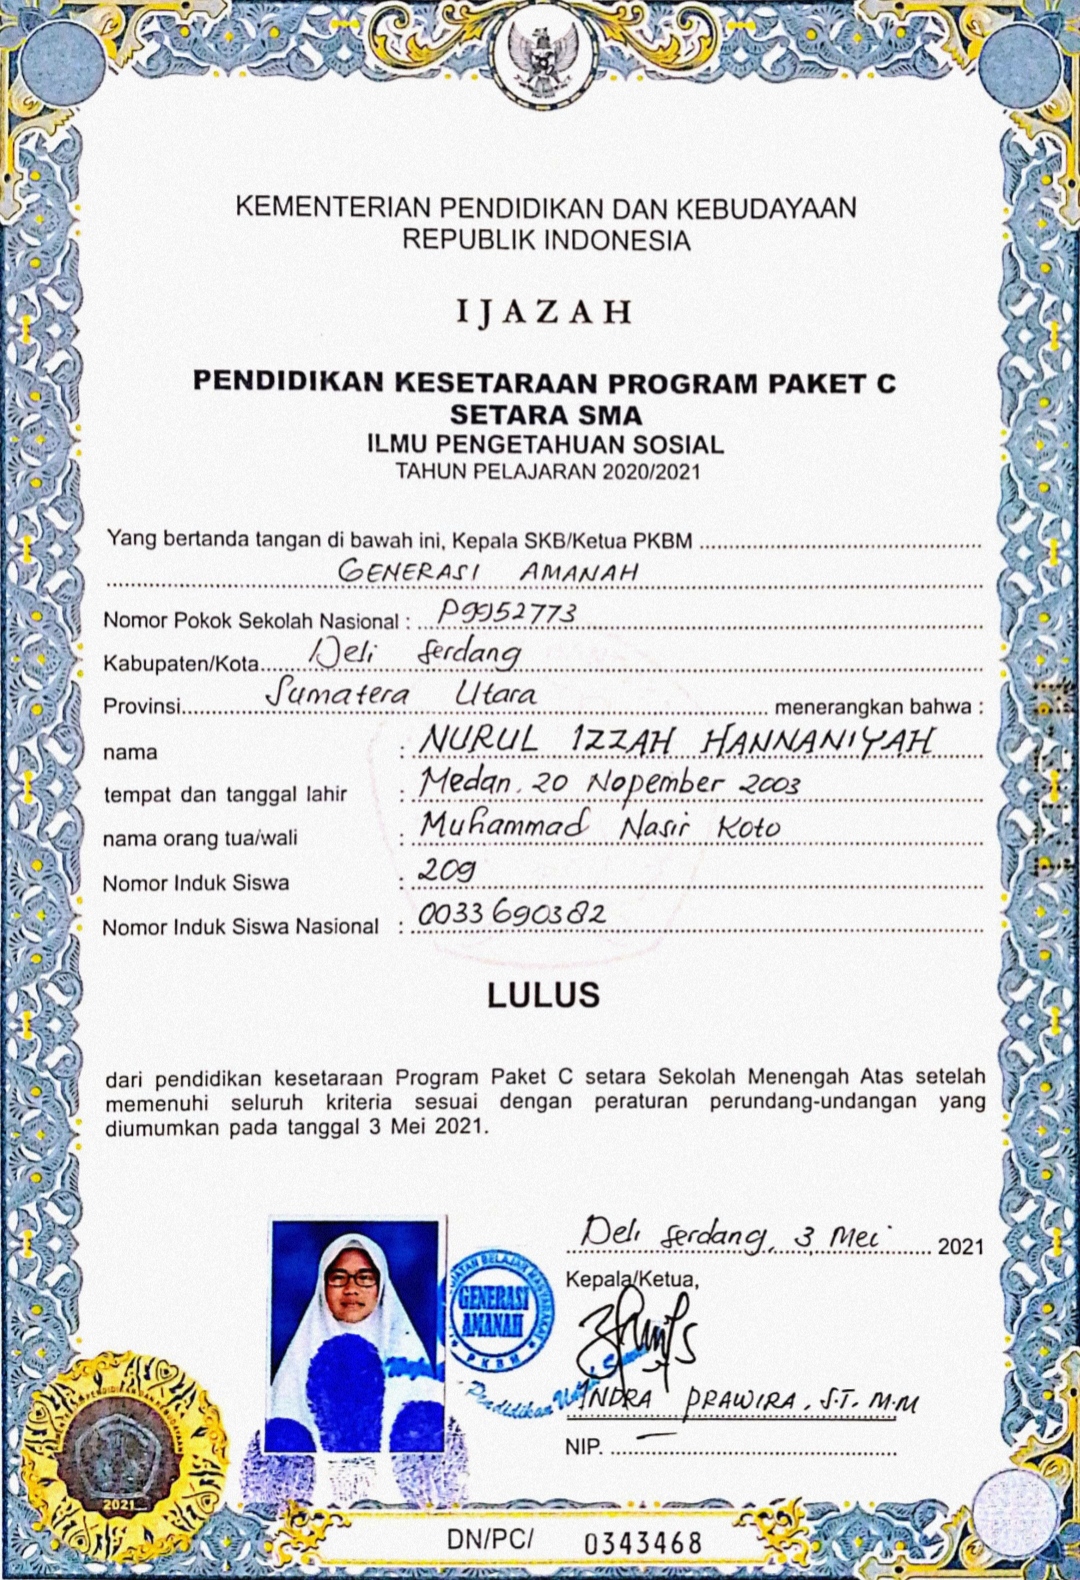 KEMENTERIAN PENDIDIKAN DAN KEBUDAYAAN
REPUBLIK INDONESIA
IJAZAH
PENDIDIKAN KESETARAAN PROGRAM PAKET C
SETARA SMA
ILMU PENGETAHUAN SOSIAL
TAHUN PELAJARAN 2020/2021
Yang bertanda tangan di bawah ini, Kepala SKB/Ketua PKBM
GENERASI AMANAH
Nomor Pokok Sekolah Nasional : P9952773
Kabupaten/Kota Deli Serdang
Provinsi Sumatera Utara menerangkan bahwa :
nama : NURUL IZZAH HANNANIYAH
tempat dan tanggal lahir : Medan, 20 Nopember 2003
nama orang tua/wali : Muhammad Nasir Koto
Nomor Induk Siswa : 209
Nomor Induk Siswa Nasional : 0033690382
LULUS
dari pendidikan kesetaraan Program Paket C setara Sekolah Menengah Atas setelah
memenuhi seluruh kriteria sesuai dengan peraturan perundang-undangan yang
diumumkan pada tanggal 3 Mei 2021.
Deli Serdang, 3 Mei 2021
Kepala/Ketua,
GENERASI
AMANAH
PKBM
Pendidikan Untuk
INDRA PRAWIRA, S.T. M.M
NIP. –
2021
DN/PC/ 0343468